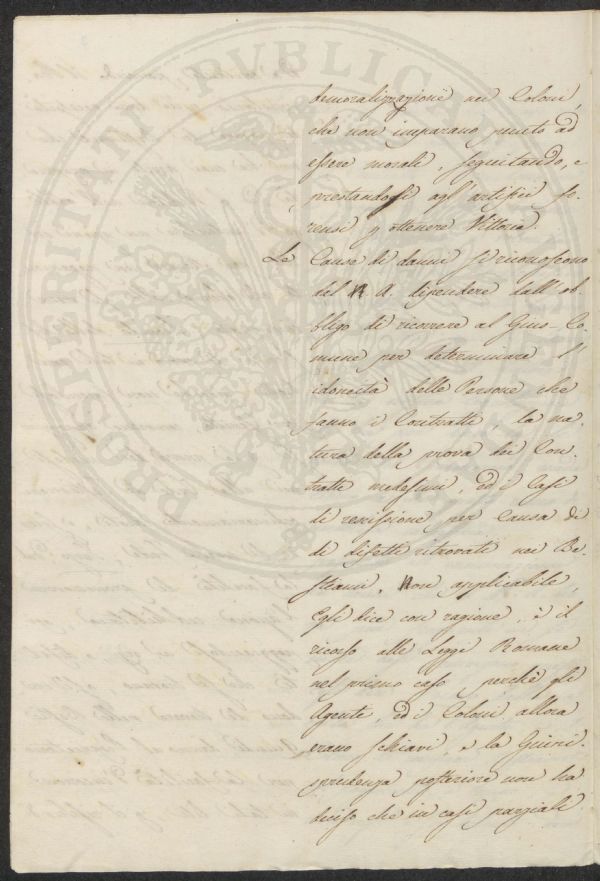 demoralizzazione nei Coloni,
che non imparano punto ad
essere morali, seguitando, e
prestandosi agl'artifizi fo-
rensi p ottenere Vittoria.
Le Cause di danni si riconoscono
del N. A. dipendere dall'ob-
bligo di ricorrere al Gius-Co-
mune per determinare l'
idoneità delle Persone che
fanno i Contratti, la na-
tura della prova dei Con-
tratti medesimi, ed i Casi
di rescissione per Causa di
di difetti ritrovati nei Be-
stiami. Non applicabile,
Egli dice con ragione, è il
ricorso alle Leggi Romane
nel primo caso, perchè gli
Agente, ed i Coloni allora
erano schiavi, e la Giuri-
sprudenza posteriore non ha
deciso che in casi parziali
PROSPERITATI PUBLICAE